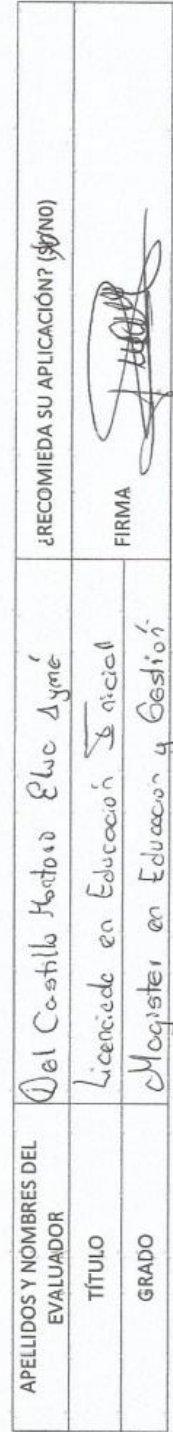 APELLIDOS Y NOMBRES DEL
EVALUADOR
Del Castillo Montoro Elue Aymé
¿RECOMIEDA SU APLICACIÓN? (SI/NO)
TÍTULO
Licenciada en Educación Inicial
FIRMA
GRADO
Magister en Educación y Gestión